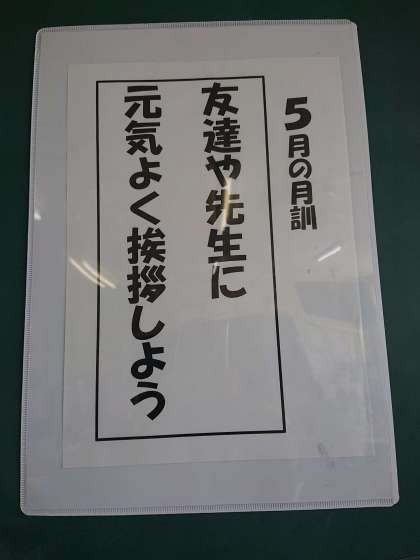 5月の月訓
友達や先生に
元気よく挨拶しよう